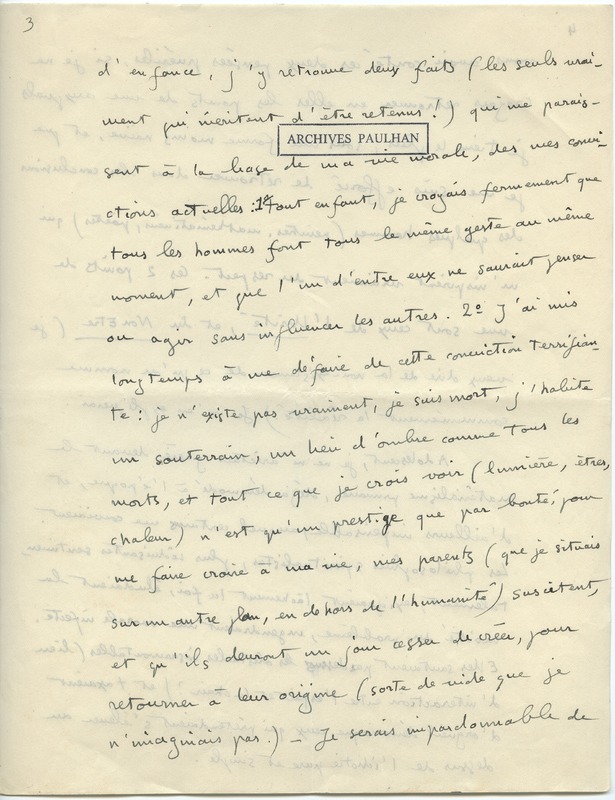 3
d'enfance, j'y retrouve deux faits (les seuls vrai-
ment qui méritent d'être retenus!) qui me parais-
ARCHIVES PAULHAN
sent à la base de ma vie morale, des mes convi-
ctions actuelles : 1º tout enfant, je croyais fermement que
tous les hommes font tous le même geste au même
moment, et que l'un d'entre eux ne saurait penser
ou agir sans influencer les autres. 2º J'ai mis
longtemps à me défaire de cette conviction terrifian-
te : je n'existe pas vraiment, je suis mort, j'habite
un souterrain, un lieu d'ombre comme tous les
morts, et tout ce que je crois voir (lumière, êtres,
chaleur) n'est qu'un prestige que par bonté, pour
me faire croire à ma vie, mes parents (que je situais
sur un autre plan, en dehors de l'humanité) suscitent,
et qu'ils devront un jour cesser de créer, pour
retourner à leur origine (sorte de vide que je
n'imaginais pas.) – Je serais impardonnable de